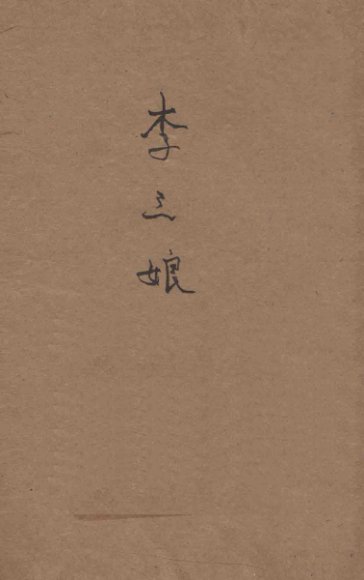 李三娘